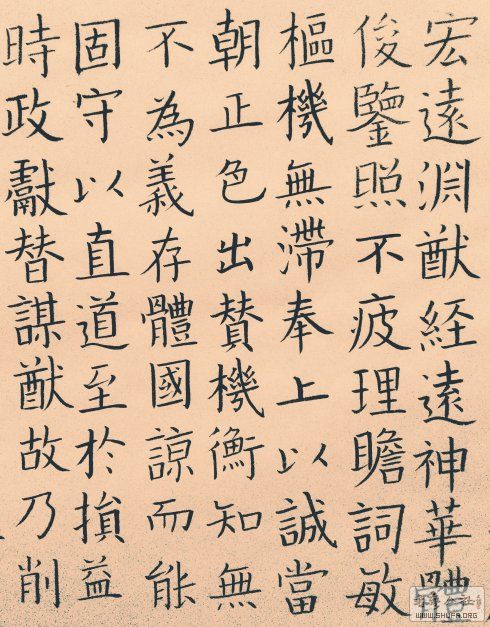 宏遠淵猷経遠神華體
俊鑒照不疲理瞻詞敏
樞機無滯奉上以誠當
朝正色出贊機衡知無
不為義存體國諒而能
固守以直道至於損益
時政獻替謀猷故乃削
WWW.SHUFA.ORG